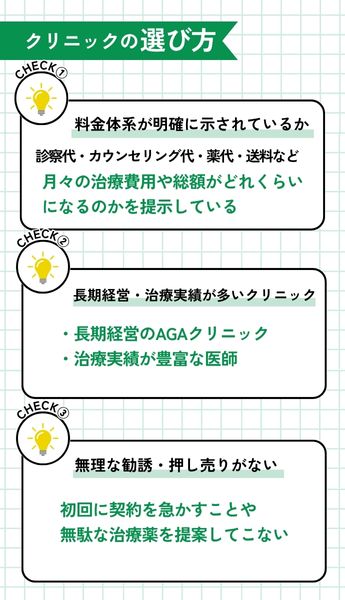 クリニックの選び方
CHECK①
料金体系が明確に示されているか
診察代・カウンセリング代・薬代・送料など
月々の治療費用や総額がどれくらい
になるのかを提示している
CHECK②
長期経営・治療実績が多いクリニック
・長期経営のAGAクリニック
・治療実績が豊富な医師
CHECK③
無理な勧誘・押し売りがない
初回に契約を急かすことや
無駄な治療薬を提案してこない